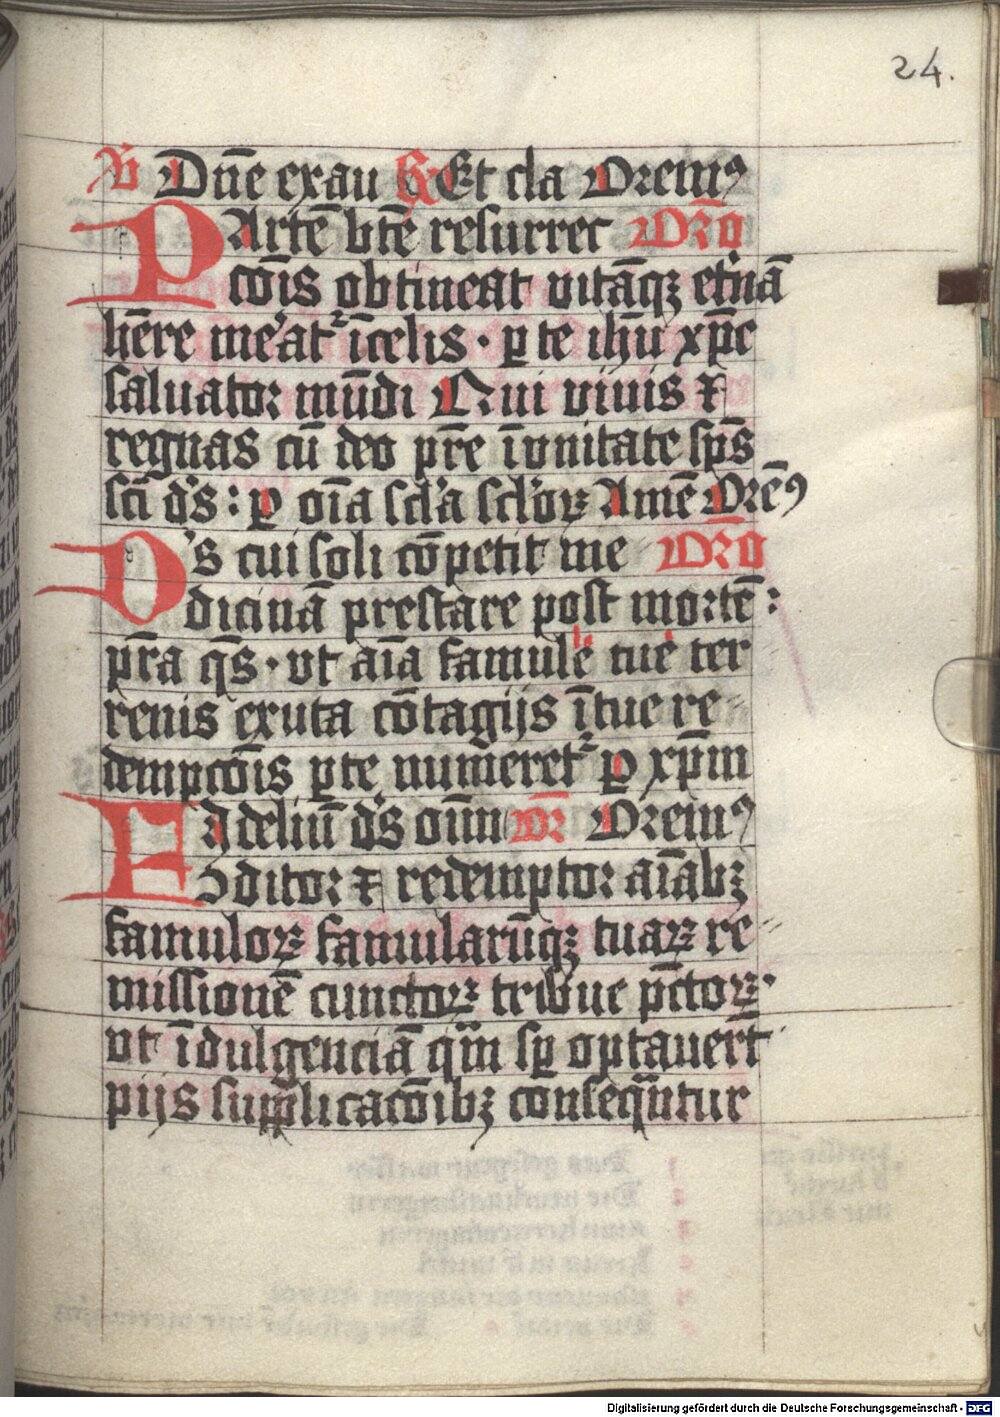 24.
V̄ Dn̄e exau R̄ Et cla Oremꝰ
PArtē b̄tē resurrec Or̄o
cōis obtineat vitāqꝫ et̄nā
hēre me᷑at᷑ ī celis · ꝑ te ih̄u xp̄e
saluator mūdi Qui viuis ⁊
regnas cū deo pr̄e ī vnitate sp̄s
sc̄i d̓s : ꝑ oīa scl̓a scl̓oꝝ Amē Orēꝰ
D̓s cui soli cōpetit me Or̄o
dicinā prestare post mortē :
pr̄a qs̄ · vt aīa famule̅ tue ter
renis exuta cōtagijs ī tue re⸗
dempcōis ꝑte num̄eret᷑ ꝑ xp̄m
FIdeliū d̓s oīm Or̄ Oremꝰ
Ↄditor ⁊ redemptor aīabꝫ
famuloꝝ famularūqꝫ tuaꝝ re⸗
missionē cunctoꝝ tribue pc̄toꝝ ·
vt īdulgenciā qͣm sꝑ optauer̄t
pijs supplicacōibꝫ conseqūntur
Digitalisierung gefördert durch die Deutsche Forschungsgemeinschaft - DFG